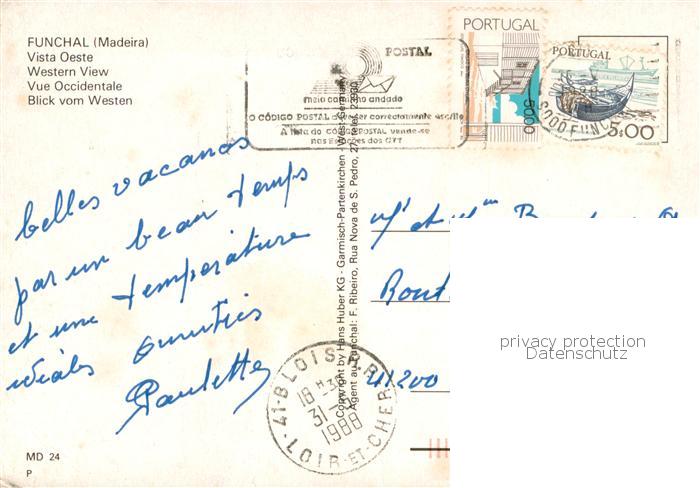 FUNCHAL (Madeira)
Vista Oeste
Western View
Vue Occidentale
Blick vom Westen
POSTAL
meio caminho andado
O CÓDIGO POSTAL deve ser correctamente escrito
A lista do CÓDIGO POSTAL vende-se
nas Estações dos CTT
PORTUGAL
5000
PORTUGAL
5$00
9000 FUNC
belles vacances
par un beau temps
et une température
idéales amitiés
Paulette
Copyright by Hans Huber KG - Garmisch-Partenkirchen - West-Germany
Agent au Funchal: F. Ribeiro, Rua Nova de S. Pedro, 27
Mr et Mme
41200
privacy protection
Datenschutz
41-BLOIS R.P.
18 H 30
31-
1988
LOIR-ET-CHER
MD 24
P